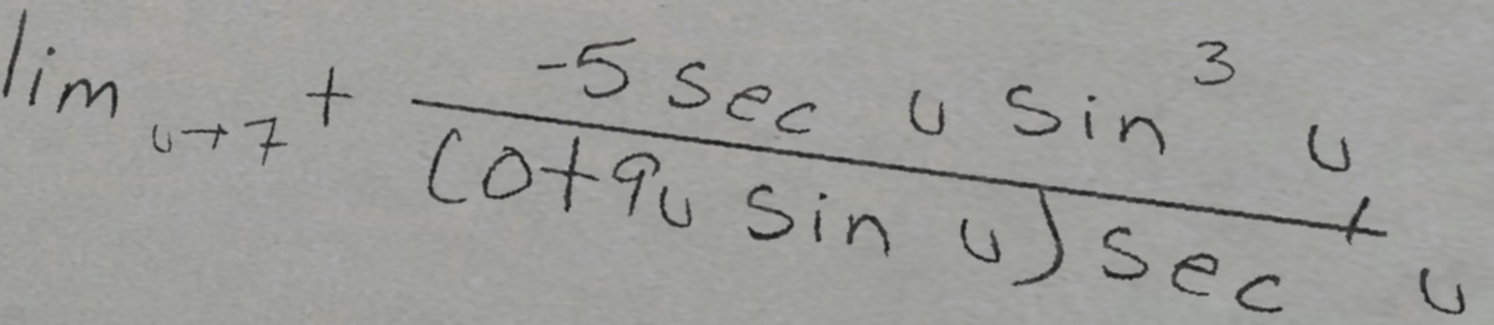 \lim_{u \to 7^+} \frac{-5 \sec u \sin^3 u}{(0+9u \sin u) \sec^1 u}